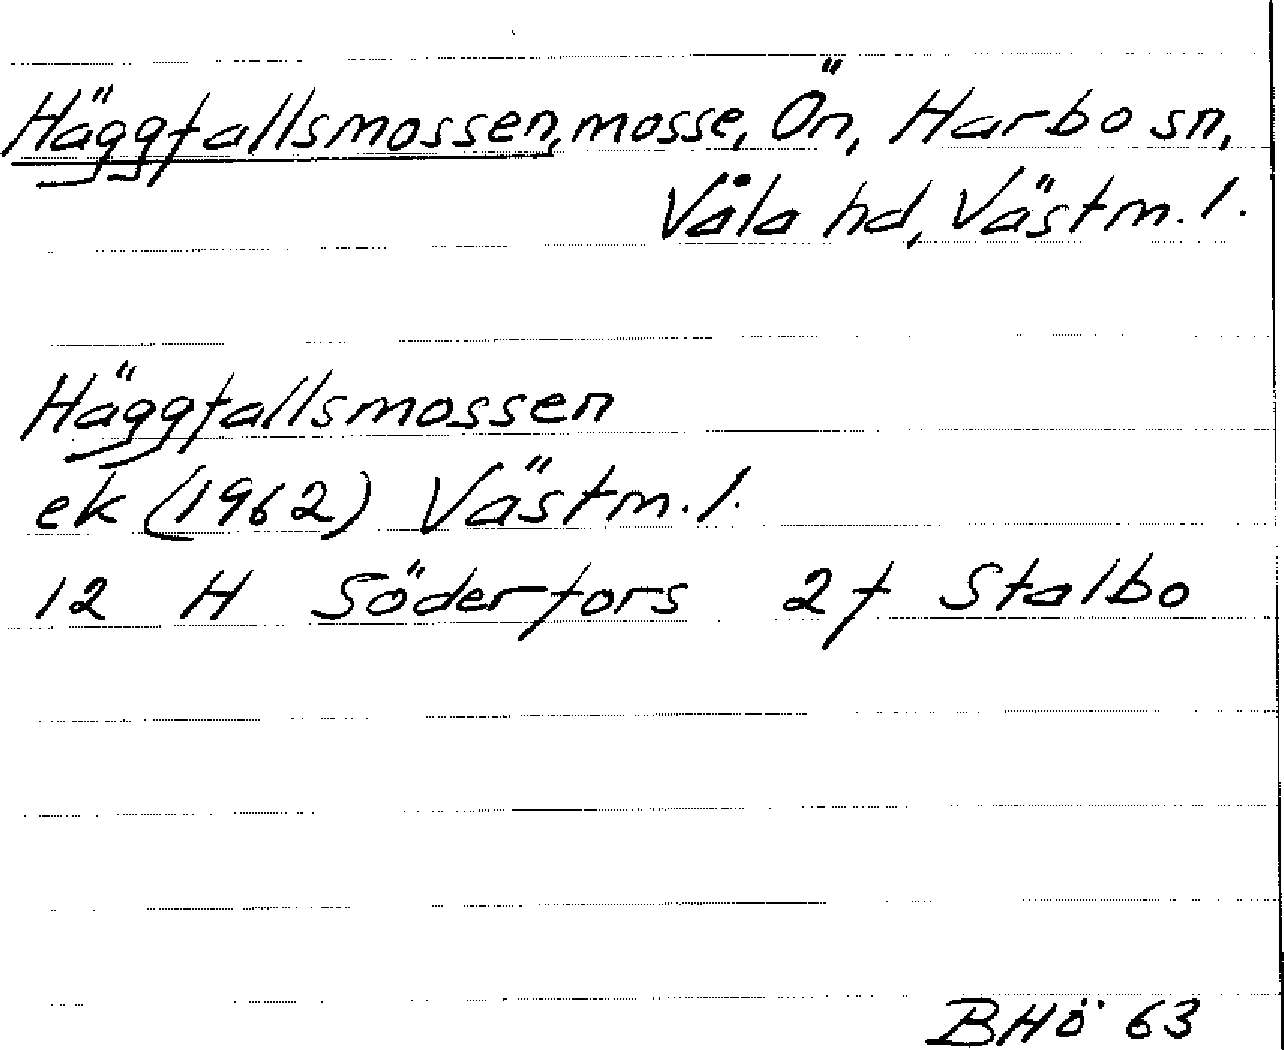 Häggfallsmossen, mosse, Ön, Harbo sn,
Våla hd, Västm. l.
Häggfallsmossen
ek (1962) Västm. l.
12 H Söderfors 2f Stalbo
BHö 63